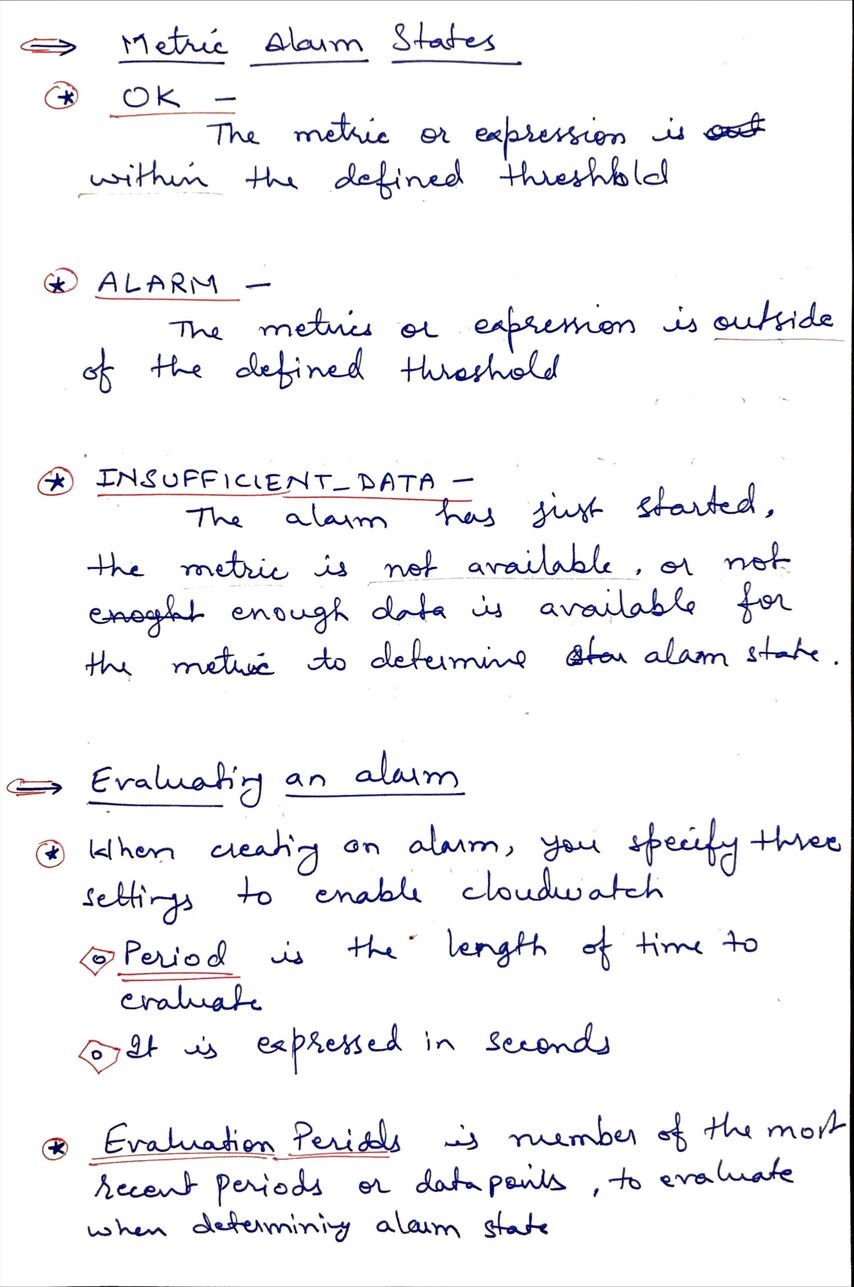 ⇒ Metric Alarm States
* OK -
The metric or expression is out
within the defined threshold
* ALARM -
The metrics or expression is outside
of the defined threshold
* INSUFFICIENT_DATA -
The alarm has just started,
the metric is not available, or not
enoght enough data is available for
the metric to determine alarm state.
⇒ Evaluating an alarm
* When creating an alarm, you specify three
settings to enable cloudwatch
Period is the length of time to
evaluate
It is expressed in seconds
* Evaluation Periods is number of the most
recent periods or data points, to evaluate
when determining alarm state